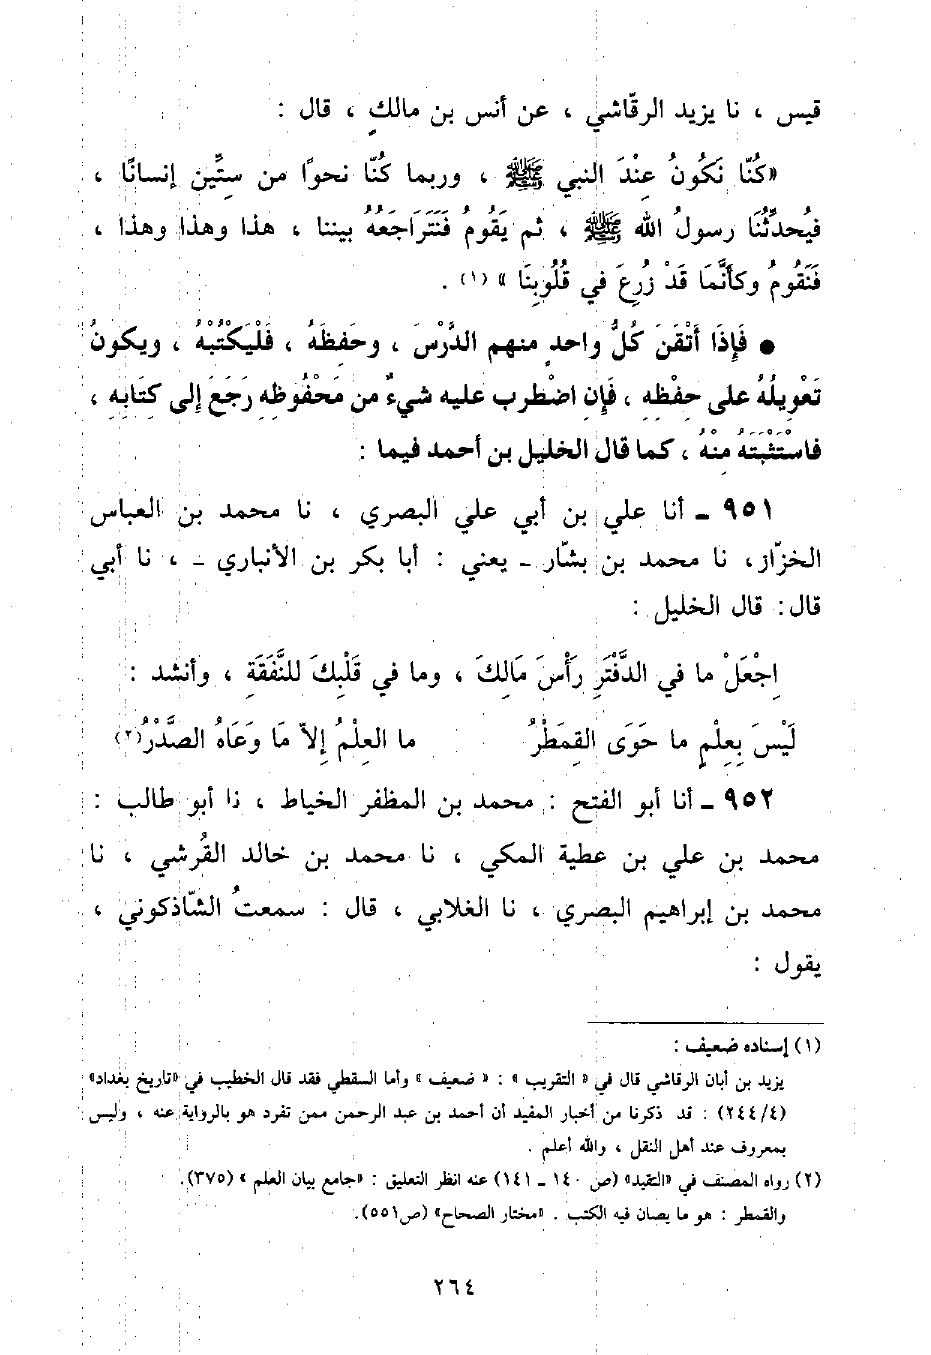 قيس ، نا يزيد الرقّاشي ، عن أنس بن مالكٍ ، قال :
«كُنّا نَكُونُ عِنْدَ النبي ﷺ ، وربما كُنّا نحوًا من ستِّين إنسانًا ،
فيُحدِّثُنَا رسولُ الله ﷺ ، ثم يَقُومُ فَنَتَرَاجَعُهُ بيننا ، هذا وهذا وهذا ،
فَنَقُومُ وكأنَّمَا قَدْ زُرِعَ في قُلُوبِنَا » (١) .
● فَإِذَا أَتْقَنَ كُلُّ واحدٍ منهم الدَّرْسَ ، وحَفِظَهُ ، فَلْيَكْتُبْهُ ، ويكونُ
تَعْوِيلُهُ على حفْظِهِ ، فَإِن اضْطرب عليه شيءٌ من مَحْفُوظِهِ رَجَعَ إلى كتَابِهِ ،
فاسْتَثْبَتَهُ مِنْهُ ، كما قال الخليل بن أحمد فيما :
٩٥١ ـ أنا علي بن أبي علي البصري ، نا محمد بن العباس
الخزّاز، نا محمد بن بشّار ـ يعني : أبا بكر بن الأنباري ـ ، نا أبي
قال: قال الخليل :
اجْعَلْ ما في الدَّفْتَرِ رَأْسَ مَالِكَ ، وما في قَلْبِكَ للنَّفَقَةِ ، وأنشد :
لَيْسَ بِعِلْمٍ ما حَوَى القِمَطْرُ ما العِلْمُ إلاّ مَا وَعَاهُ الصَّدْرُ(٢)
٩٥٢ ـ أنا أبو الفتح : محمد بن المظفر الخياط ، نا أبو طالب :
محمد بن علي بن عطية المكي ، نا محمد بن خالد القُرشي ، نا
محمد بن إبراهيم البصري ، نا الغلابي ، قال : سمعتُ الشّاذكوني ،
يقول :
(١) إسناده ضعيف :
يزيد بن أبان الرقاشي قال في « التقريب » : « ضعيف » وأما السقطي فقد قال الخطيب في «تاريخ بغداد»
(٢٤٤/٤) : قد ذكرنا من أخبار المفيد أن أحمد بن عبد الرحمن ممن تفرد هو بالرواية عنه ، وليس
بمعروف عند أهل النقل ، والله أعلم .
(٢) رواه المصنف في «التقيد» (ص ١٤٠ ـ ١٤١) عنه انظر التعليق : «جامع بيان العلم » (٣٧٥).
والقمطر : هو ما يصان فيه الكتب . «مختار الصحاح» (ص٥٥١).
٢٦٤